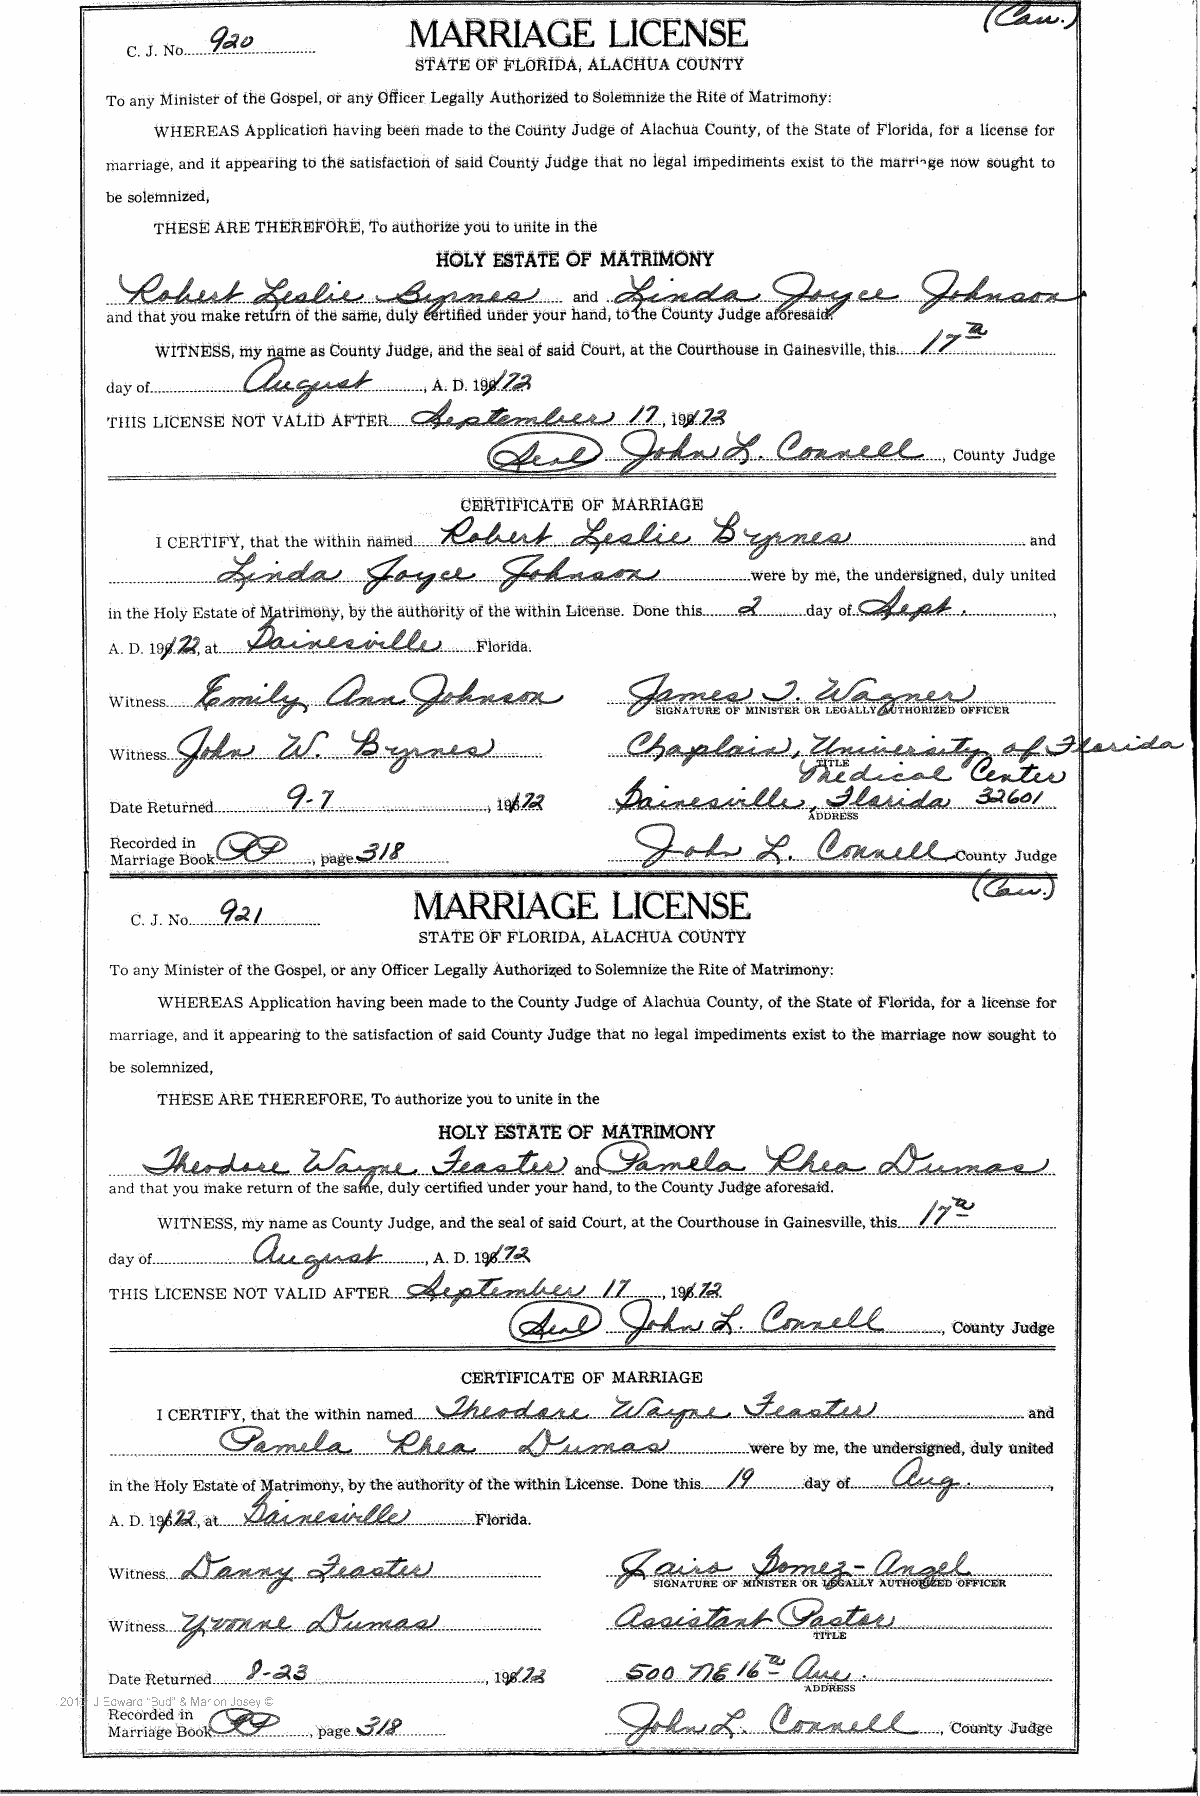 (Cau.)
C. J. No. 920
MARRIAGE LICENSE
STATE OF FLORIDA, ALACHUA COUNTY
To any Minister of the Gospel, or any Officer Legally Authorized to Solemnize the Rite of Matrimony:
WHEREAS Application having been made to the County Judge of Alachua County, of the State of Florida, for a license for
marriage, and it appearing to the satisfaction of said County Judge that no legal impediments exist to the marriage now sought to
be solemnized,
THESE ARE THEREFORE, To authorize you to unite in the
HOLY ESTATE OF MATRIMONY
Robert Leslie Byrnes and Linda Joyce Johnson
and that you make return of the same, duly certified under your hand, to the County Judge aforesaid.
WITNESS, my name as County Judge, and the seal of said Court, at the Courthouse in Gainesville, this 17th
day of August, A. D. 1972
THIS LICENSE NOT VALID AFTER September 17, 1972
(Seal) John L. Connell, County Judge
CERTIFICATE OF MARRIAGE
I CERTIFY, that the within named Robert Leslie Byrnes and
Linda Joyce Johnson were by me, the undersigned, duly united
in the Holy Estate of Matrimony, by the authority of the within License. Done this 2 day of Sept.,
A. D. 1972, at Gainesville Florida.
Witness Emily Ann Johnson James T. Wagner
SIGNATURE OF MINISTER OR LEGALLY AUTHORIZED OFFICER
Witness John W. Byrnes Chaplain, University of Florida
TITLE
Medical Center
Date Returned 9-7, 1972 Gainesville, Florida 32601
ADDRESS
Recorded in
Marriage Book PP, page 318 John L. Connell County Judge
(Cau.)
C. J. No. 921
MARRIAGE LICENSE
STATE OF FLORIDA, ALACHUA COUNTY
To any Minister of the Gospel, or any Officer Legally Authorized to Solemnize the Rite of Matrimony:
WHEREAS Application having been made to the County Judge of Alachua County, of the State of Florida, for a license for
marriage, and it appearing to the satisfaction of said County Judge that no legal impediments exist to the marriage now sought to
be solemnized,
THESE ARE THEREFORE, To authorize you to unite in the
HOLY ESTATE OF MATRIMONY
Theodore Wayne Feaster and Pamela Rhea Dumas
and that you make return of the same, duly certified under your hand, to the County Judge aforesaid.
WITNESS, my name as County Judge, and the seal of said Court, at the Courthouse in Gainesville, this 17th
day of August, A. D. 1972
THIS LICENSE NOT VALID AFTER September 17, 1972
(Seal) John L. Connell, County Judge
CERTIFICATE OF MARRIAGE
I CERTIFY, that the within named Theodore Wayne Feaster and
Pamela Rhea Dumas were by me, the undersigned, duly united
in the Holy Estate of Matrimony, by the authority of the within License. Done this 19 day of Aug.,
A. D. 1972, at Gainesville Florida.
Witness Danny Feaster Jairo Gomez-Angel
SIGNATURE OF MINISTER OR LEGALLY AUTHORIZED OFFICER
Witness Yvonne Dumas Assistant Pastor
TITLE
Date Returned 8-23, 1972 500 NE 16th Ave.
ADDRESS
J Edward "Bud" & Marion Josey ©
Recorded in
Marriage Book PP, page 318 John L. Connell, County Judge